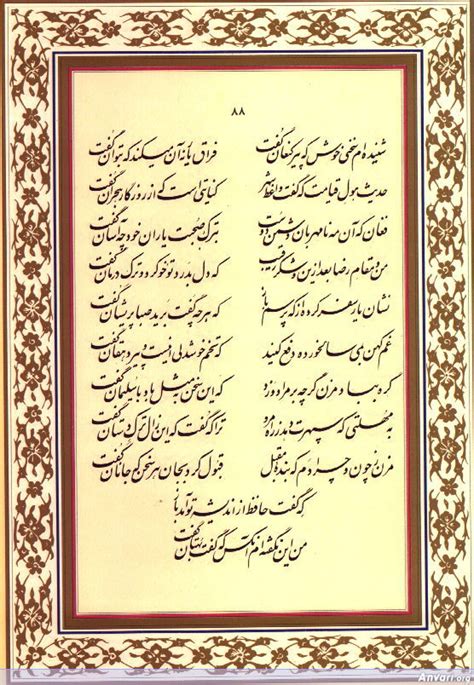 ۸۸
شنیده‌ام سخنی خوش که پیر کنعان گفت فراق یار نه آن می‌کند که بتوان گفت
حدیث هول قیامت که گفت واعظ شهر کنایتی است که از روزگار هجران گفت
فغان که آن مه نامهربان دشمن دوست بترک صحبت یاران خود چه آسان گفت
من و مقام رضا بعد ازین و شکر رقیب که دل بدرد تو خو کرد و ترک درمان گفت
نشان یار سفر کرده از که پرسم باز که هر چه گفت برید صبا پریشان گفت
غم کهن بمی سالخورده دفع کنید که تخم خوشدلی اینست و پیر دهقان گفت
گره بباد مزن گرچه بر مراد وزد که این سخن به مثل باد با سلیمان گفت
به مهلتی که سپهرت دهد ز راه مرو ترا که گفت که این زال ترک دستان گفت
مزن ز چون و چرا دم که بنده مقبل قبول کرد بجان هر سخن که جانان گفت
که گفت حافظ از اندیشه تو آمد باز
من این نگفته‌ام آنکس که گفت بهتان گفت
Anvari.org